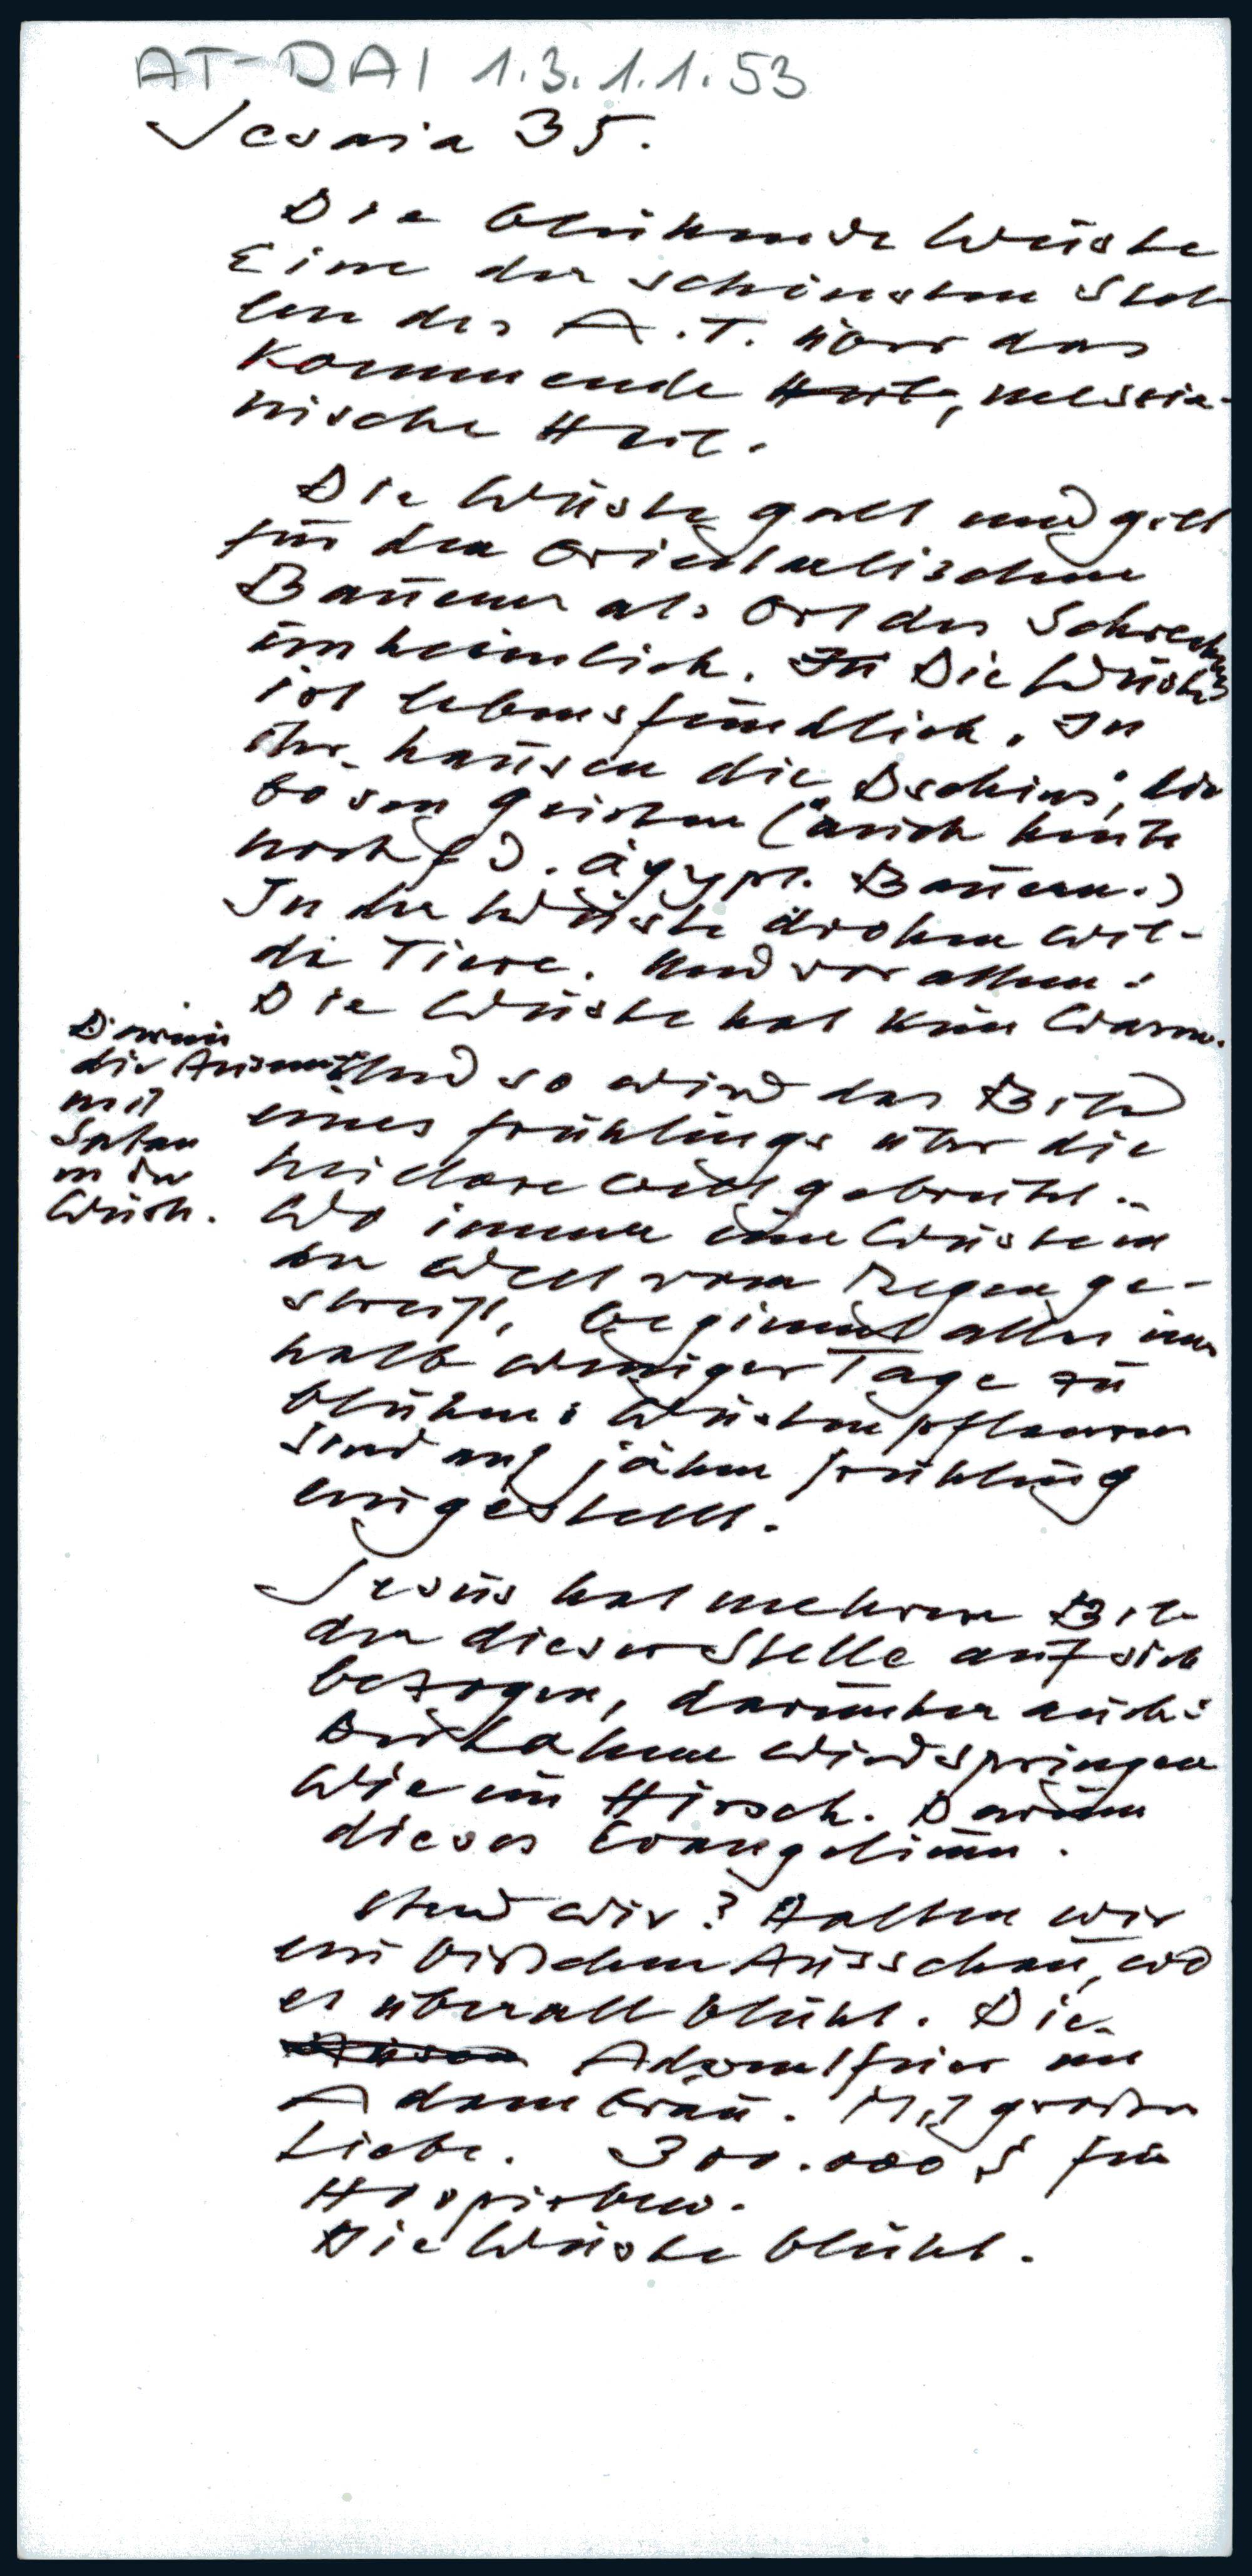 AT-DAI 1.3.1.1.53
Jesaia 35.
Die blühende Wüste
Eine der schönsten Stel
len des A.T. über das
kommende Heil, messia-
nische Heil.
Die Wüste galt und gilt
für den orientalischen
Bauern als Ort des Schreckens
unheimlich. In Die Wüste
ist lebensfeindlich. In
ihr hausen die "Dschins", die
bösen Geister (auch heute
noch f d. ägypt. Bauern.)
In der Wüste drohen wil-
de Tiere. Und vor allem:
Die Wüste hat kein Wasser.
Darum
die
mit
Satan
in der
Wüste.
Und so wird das Bild
eines Frühlings über die
gebraucht.
Wo immer eine Wüste in
der Welt vom Regen ge-
streift, beginnt alles inner
halb weniger Tage zu
blühen: Wüstenpflanzen
sind auf jähen Frühling
eingestellt.
Jesus hat mehrere Bil
der dieser Stelle auf sich
bezogen, darunter auch:
Der Lahme wird springen
wie ein Hirsch. Darum
dieses Evangelium.
Und wir? Halten wir
ein bißchen Ausschau, wo
es überall blüht. Die
Adventfeier im
Adambräu. Mit großer
Liebe. 300.000 S für
Die Wüste blüht.